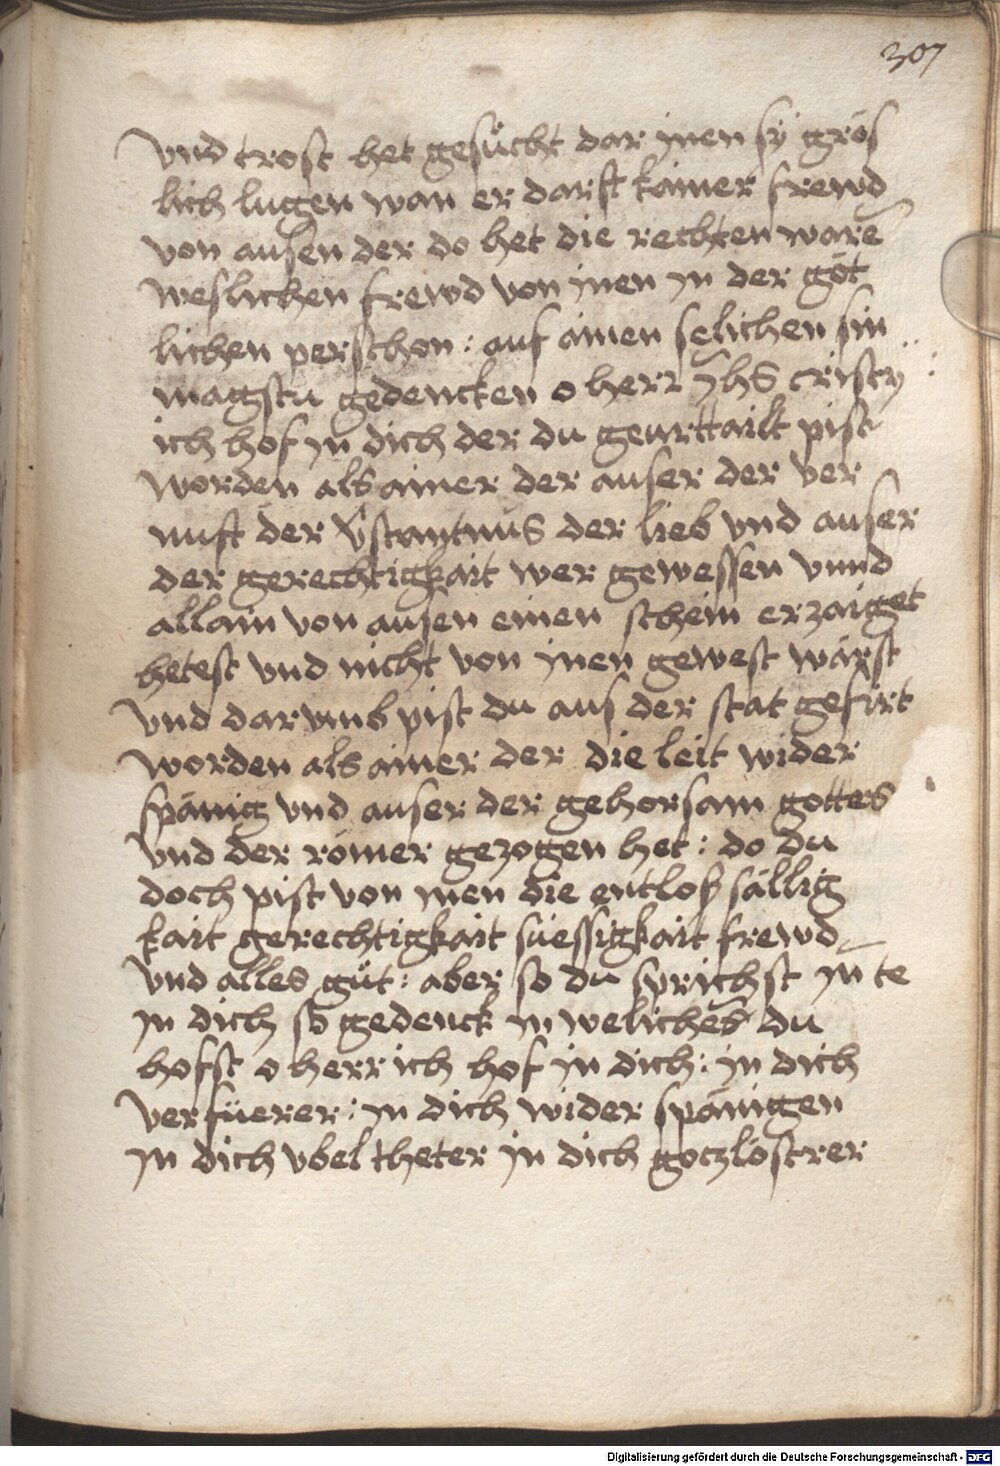 307
vnd trost het gesücht dar jnen sÿ grös
lich lugen wan er darft kainer frewd
von ausen der do het die rechten ware
weslichen frewd von jnen jn der göt
lichen perschon : auf ainen selichen sin
magstu gedencken o herr Jhs cristy
ich hof jn dich der du geurttailt pist
worden als ainer der auser der ver
nuft der v̄stantnus der lieb vnd auser
der gerechtigkait wer gewessen vnnd
allain von ausen einen schein erzaiget
hetest vnd nicht von jnen gewest wärst
vnd darvmb pist du aus der stat gefirt
worden als ainer der die leit wider
spänig vnd auser der gehorsam gottes
vnd der römer gezogen het : do du
doch pist von jnen die entloß sällig
kait gerechtigkait süessigkait frewd
vnd alles güt : aber so du sprichst jn te
jn dich so gedenck jn weliches du
hofst o herr ich hof jn dich : jn dich
verfüerer : jn dich wider spänigen
jn dich vbeltheter jn dich goczlöstrer
Digitalisierung gefördert durch die Deutsche Forschungsgemeinschaft - DFG